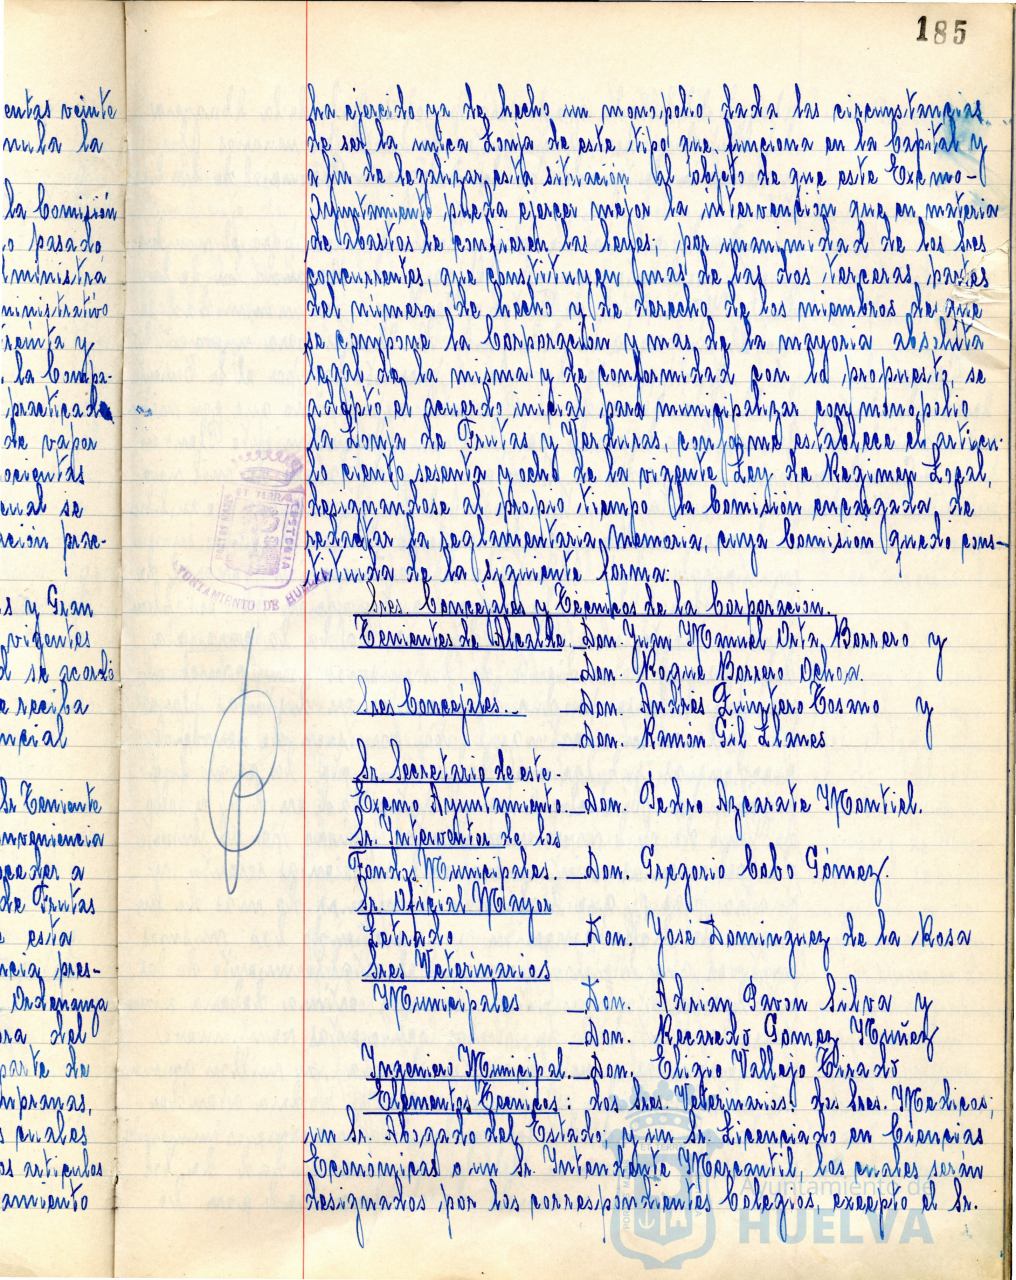 185
entas veinte
nula la
la Comisión
o pasado
ministra
ministrativo
reinta y
, la Compa-
practicada
de vapor
ocientas
cual se
ación prac-
s y Gran
vigentes
d se acordó
e reciba
ncial
Sr Teniente
nveniencia
ceder a
de Frutas
e esta
ncia pres-
Ordenanza
ora, del
parte de
mpranas,
s cuales
os articulos
amiento
ha ejercido ya de hecho un monopolio, dada las circunstancias
de ser la unica Lonja de este tipo que funciona en la Capital y
a fin de legalizar esta situación al objeto de que este Excmo-
Ayuntamiento pueda ejercer mejor la intervencion que en materia
de abastos le confieren las Leyes; por unanimidad de los Sres
concurrentes, que constituyen mas de las dos terceras partes
del número de hecho y de derecho de los miembros de que
se compone la Corporación y mas de la mayoria absoluta
legal de la misma y de conformidad con lo propuesto, se
adoptó el acuerdo inicial para municipalizar con monopolio
la Lonja de Frutas y Verduras, conforme establece el articu-
lo ciento sesenta y ocho de la vigente Ley de Regimen Local,
designandose al propio tiempo la Comisión encargada de
redactar la reglamentaria Memoria, cuya Comision quedo cons-
tituida de la siguiente forma:
Sres. Concejales y Técnicos de la Corporacion.
Tenientes de Alcalde. Don Juan Manuel Orta Borrero y
Don. Roque Borrero Ochoa.
Sres Concejales.- Don. Andrés Quintero Tosano y
Don. Ramón Gil Llanes
Sr. Secretario de este-
Excmo Ayuntamiento- Don. Pedro Azcarate Montiel.
Sr. Interventor de los
Fondos Municipales. Don. Gregorio Cabo Gómez.
Sr. Oficial Mayor
Letrado Don. José Dominguez de la Rosa
Sres Veterinarios
Municipales Don. Adrian Pavon Silva y
Don. Recaredo Gomez Muñez
Ingeniero Municipal. Don. Eligio Vallejo Tirado
Elementos Tecnicos: dos Sres. Veterinarios; dos Sres. Medicos;
un Sr. Abogado del Estado, y un Sr Licenciado en Ciencias
Económicas o un Sr. Intendente Mercantil, los cuales serán
designados por los correspondientes Colegios, excepto el Sr.
AYUNTAMIENTO DE HUELVA
Ayuntamiento de
HUELVA